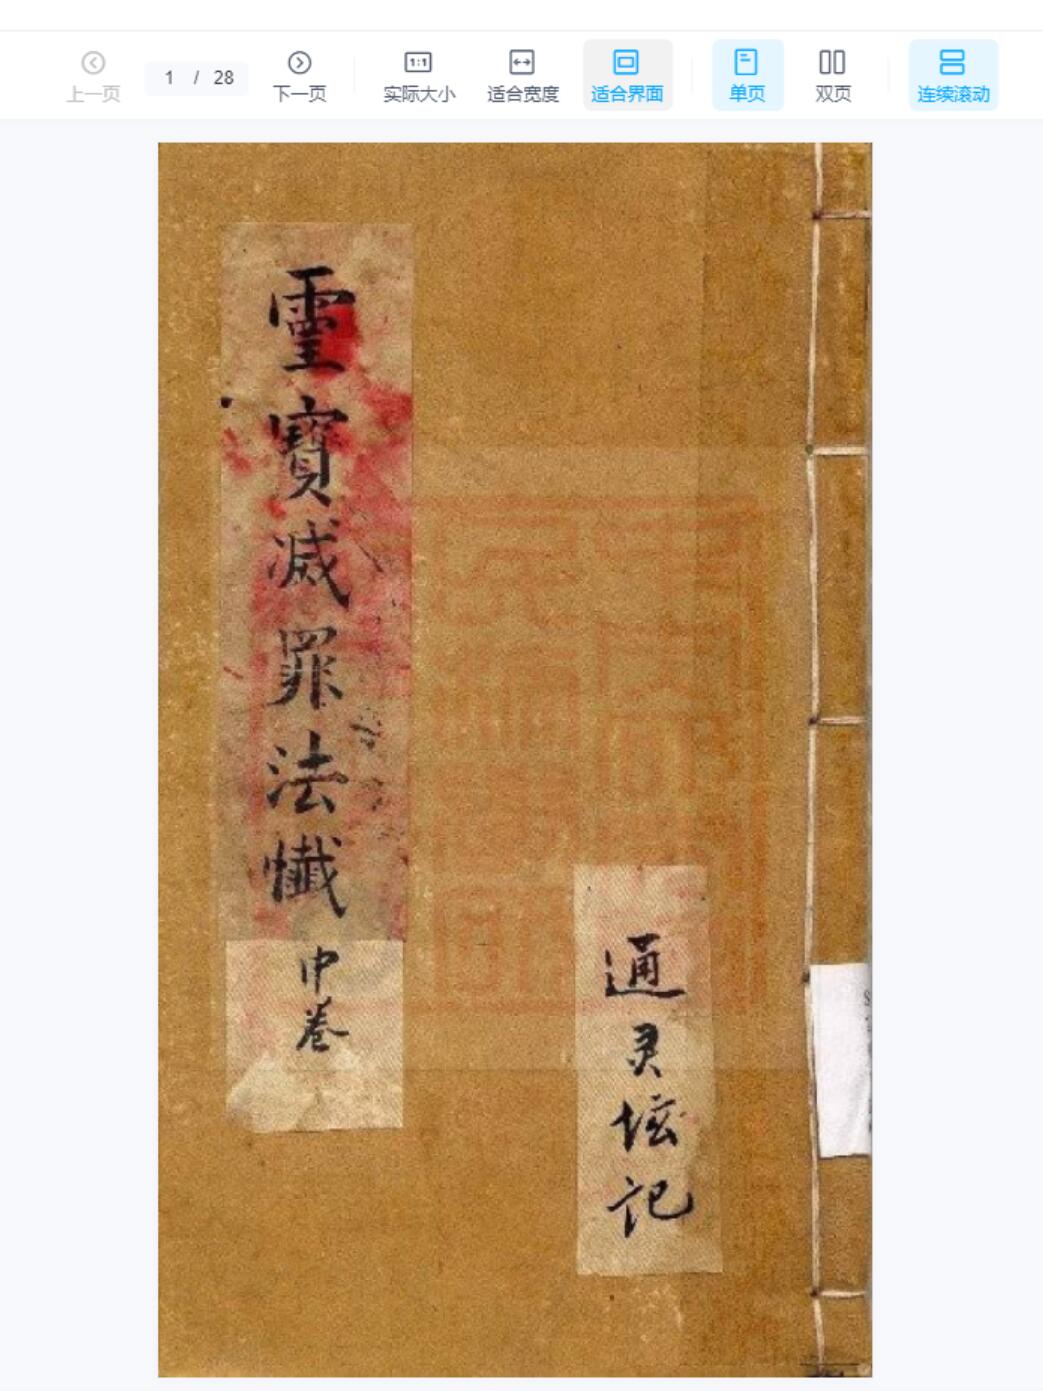 上一页
1 / 28
下一页
1:1
实际大小
适合宽度
适合界面
单页
双页
连续滚动
靈寶滅罪法懺
中卷
通灵坛记